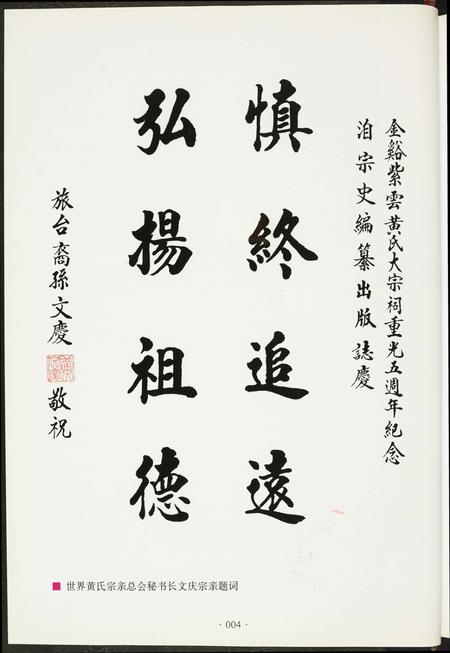 金谿紫雲黃氏大宗祠重光五週年紀念
洎宗史編纂出版誌慶
慎終追遠
弘揚祖德
旅台裔孫文慶
敬祝
■ 世界黄氏宗亲总会秘书长文庆宗亲题词
·004·